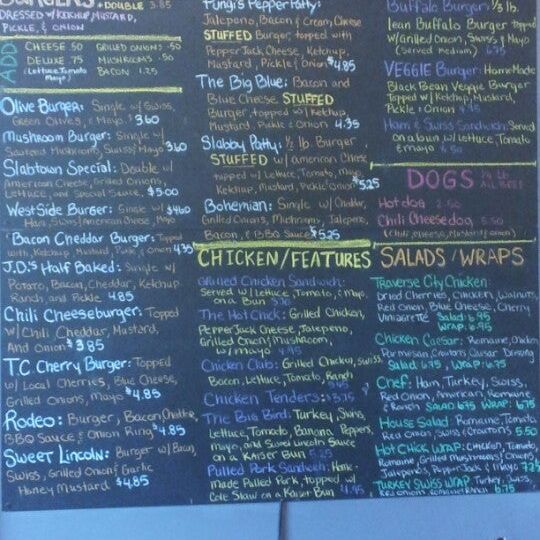 BURGERS
+DOUBLE 3.85
DRESSED w/ KETCHUP, MUSTARD,
PICKLE, & ONION
ADD
CHEESE .50 GRILLED ONIONS .50
DELUXE .75 MUSHROOMS .50
(Lettuce, Tomato Mayo) BACON 1.25
Olive Burger: Single w/ Swiss,
Green Olives, & Mayo 3.60
Mushroom Burger: Single w/
Sauteed Mushrooms, Swiss, & Mayo 3.60
Slabtown Special: Double w/
American Cheese, Grilled Onions,
Lettuce, and Special Sauce. $5.00
WestSide Burger: Single w/ $4.60
Ham, Swiss/American Cheese, Mayo
Bacon Cheddar Burger: Topped
with Ketchup, Mustard, Pickle, & Onion 4.35
J.D.'s Half Baked: Single w/
Potato, Bacon, Cheddar, Ketchup
Ranch, and Pickle 4.85
Chili Cheeseburger: Topped
w/ Chili, Cheddar, Mustard,
And Onion $3.85
T.C. Cherry Burger: Topped
w/ Local Cherries, Blue Cheese,
Grilled Onions, Mayo $4.85
Rodeo: Burger, Bacon, Cheddar,
BBQ Sauce, & Onion Ring $4.85
Sweet Lincoln: Burger w/ Bacon,
Swiss, Grilled Onion & Garlic
Honey Mustard $4.85
Fungi's Pepper Patty:
Jalepeno, Bacon & Cream Cheese
STUFFED Burger, topped with
Pepper Jack Cheese, Ketchup,
Mustard, Pickle & Onion $4.85
The Big Blue: Bacon and
Blue Cheese STUFFED
Burger, topped w/ Ketchup,
Mustard, Pickle & Onion 4.35
Slabby Patty: 1/2 lb. Burger
STUFFED w/ American Cheese
topped w/ Lettuce, Tomato, Mayo,
Ketchup, Mustard, Pickle, Onion 5.25
Bohemian: Single w/ Cheddar,
Grilled Onions, Mushrooms, Jalepeno,
Bacon, & BBQ Sauce $5.25
CHICKEN/FEATURES
Grilled Chicken Sandwich:
Served w/ Lettuce, Tomato, & Mayo
on a Bun
The Hot Chick: Grilled Chicken,
Pepper Jack Cheese, Jalepeno,
Grilled Onion & Mushroom,
w/ Mayo 4.95
Chicken Club: Grilled Chicken, Swiss,
Bacon, Lettuce, Tomato, Ranch
5.45
Chicken Tenders: $3.75
The Big Bird: Turkey, Swiss,
Lettuce, Tomato, Banana Peppers,
Mayo, and Sweet Lincoln Sauce
on a Kaiser Bun 5.25
Pulled Pork Sandwich: Home-
made Pulled Pork, topped w/
Cole Slaw on a Kaiser Bun 4.95
Buffalo Burger: 1/3 lb.
lean Buffalo Burger topped
w/ Grilled Onion, Swiss, & Mayo
(Served medium) 6.75
VEGGIE Burger: HomeMade
Black Bean Veggie Burger
Topped w/ Ketchup, Mustard,
Pickle & Onion
Ham & Swiss Sandwich: Served
On a bun w/ Lettuce, Tomato
& mayo
DOGS 1/4 lb ALL BEEF
Hot dog 2.50
Chili Cheesedog 3.50
(Chili, Cheese, Mustard/Onion)
SALADS/WRAPS
Traverse City Chicken:
Dried Cherries, Chicken, Walnuts,
Red Onion, Blue Cheese, Cherry
Vinaigrette Salad 6.95
WRAP: 6.95
Chicken Caesar: Romaine, Chicken
Parmesan, Croutons, Caesar Dressing
Salad: 6.75, WRAP: 6.75
Chef: Ham, Turkey, Swiss,
Red Onion, American, Romaine
& Ranch SALAD 6.75 WRAP: 6.75
House Salad: Romaine, Tomato,
Red Onion, Swiss, & Croutons 5.50
Hot Chick WRAP: Chicken, Tomato,
Romaine, Grilled Mushrooms/Onions,
Jalapenos, PepperJack & Mayo 7.25
TURKEY SWISS WRAP: Turkey, Swiss,
Red Onion, Romaine, Ranch 6.75